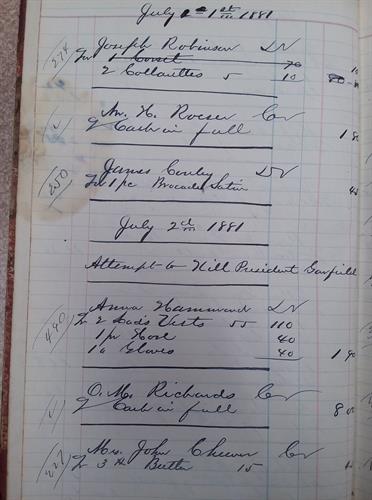 July 1st 1881
274 Joseph Robinson Dr
To 1 Corset 70
2 Collarettes 5 10
Mr. H. Roeser Cr
By Cash in full 1
250 James Conley Dr
To 1 pc Brocade Satin
July 2d 1881
Attempt to Kill President Garfield
440 Anna Hammond Dr
To 2 Lad's Vests 55 110
1 pr Hose 40
1 " Gloves 40 1 90
O. M. Richards Cr
By Cash in full 8
227 Mrs. John Cheever Cr
By 3 lb Butter 15